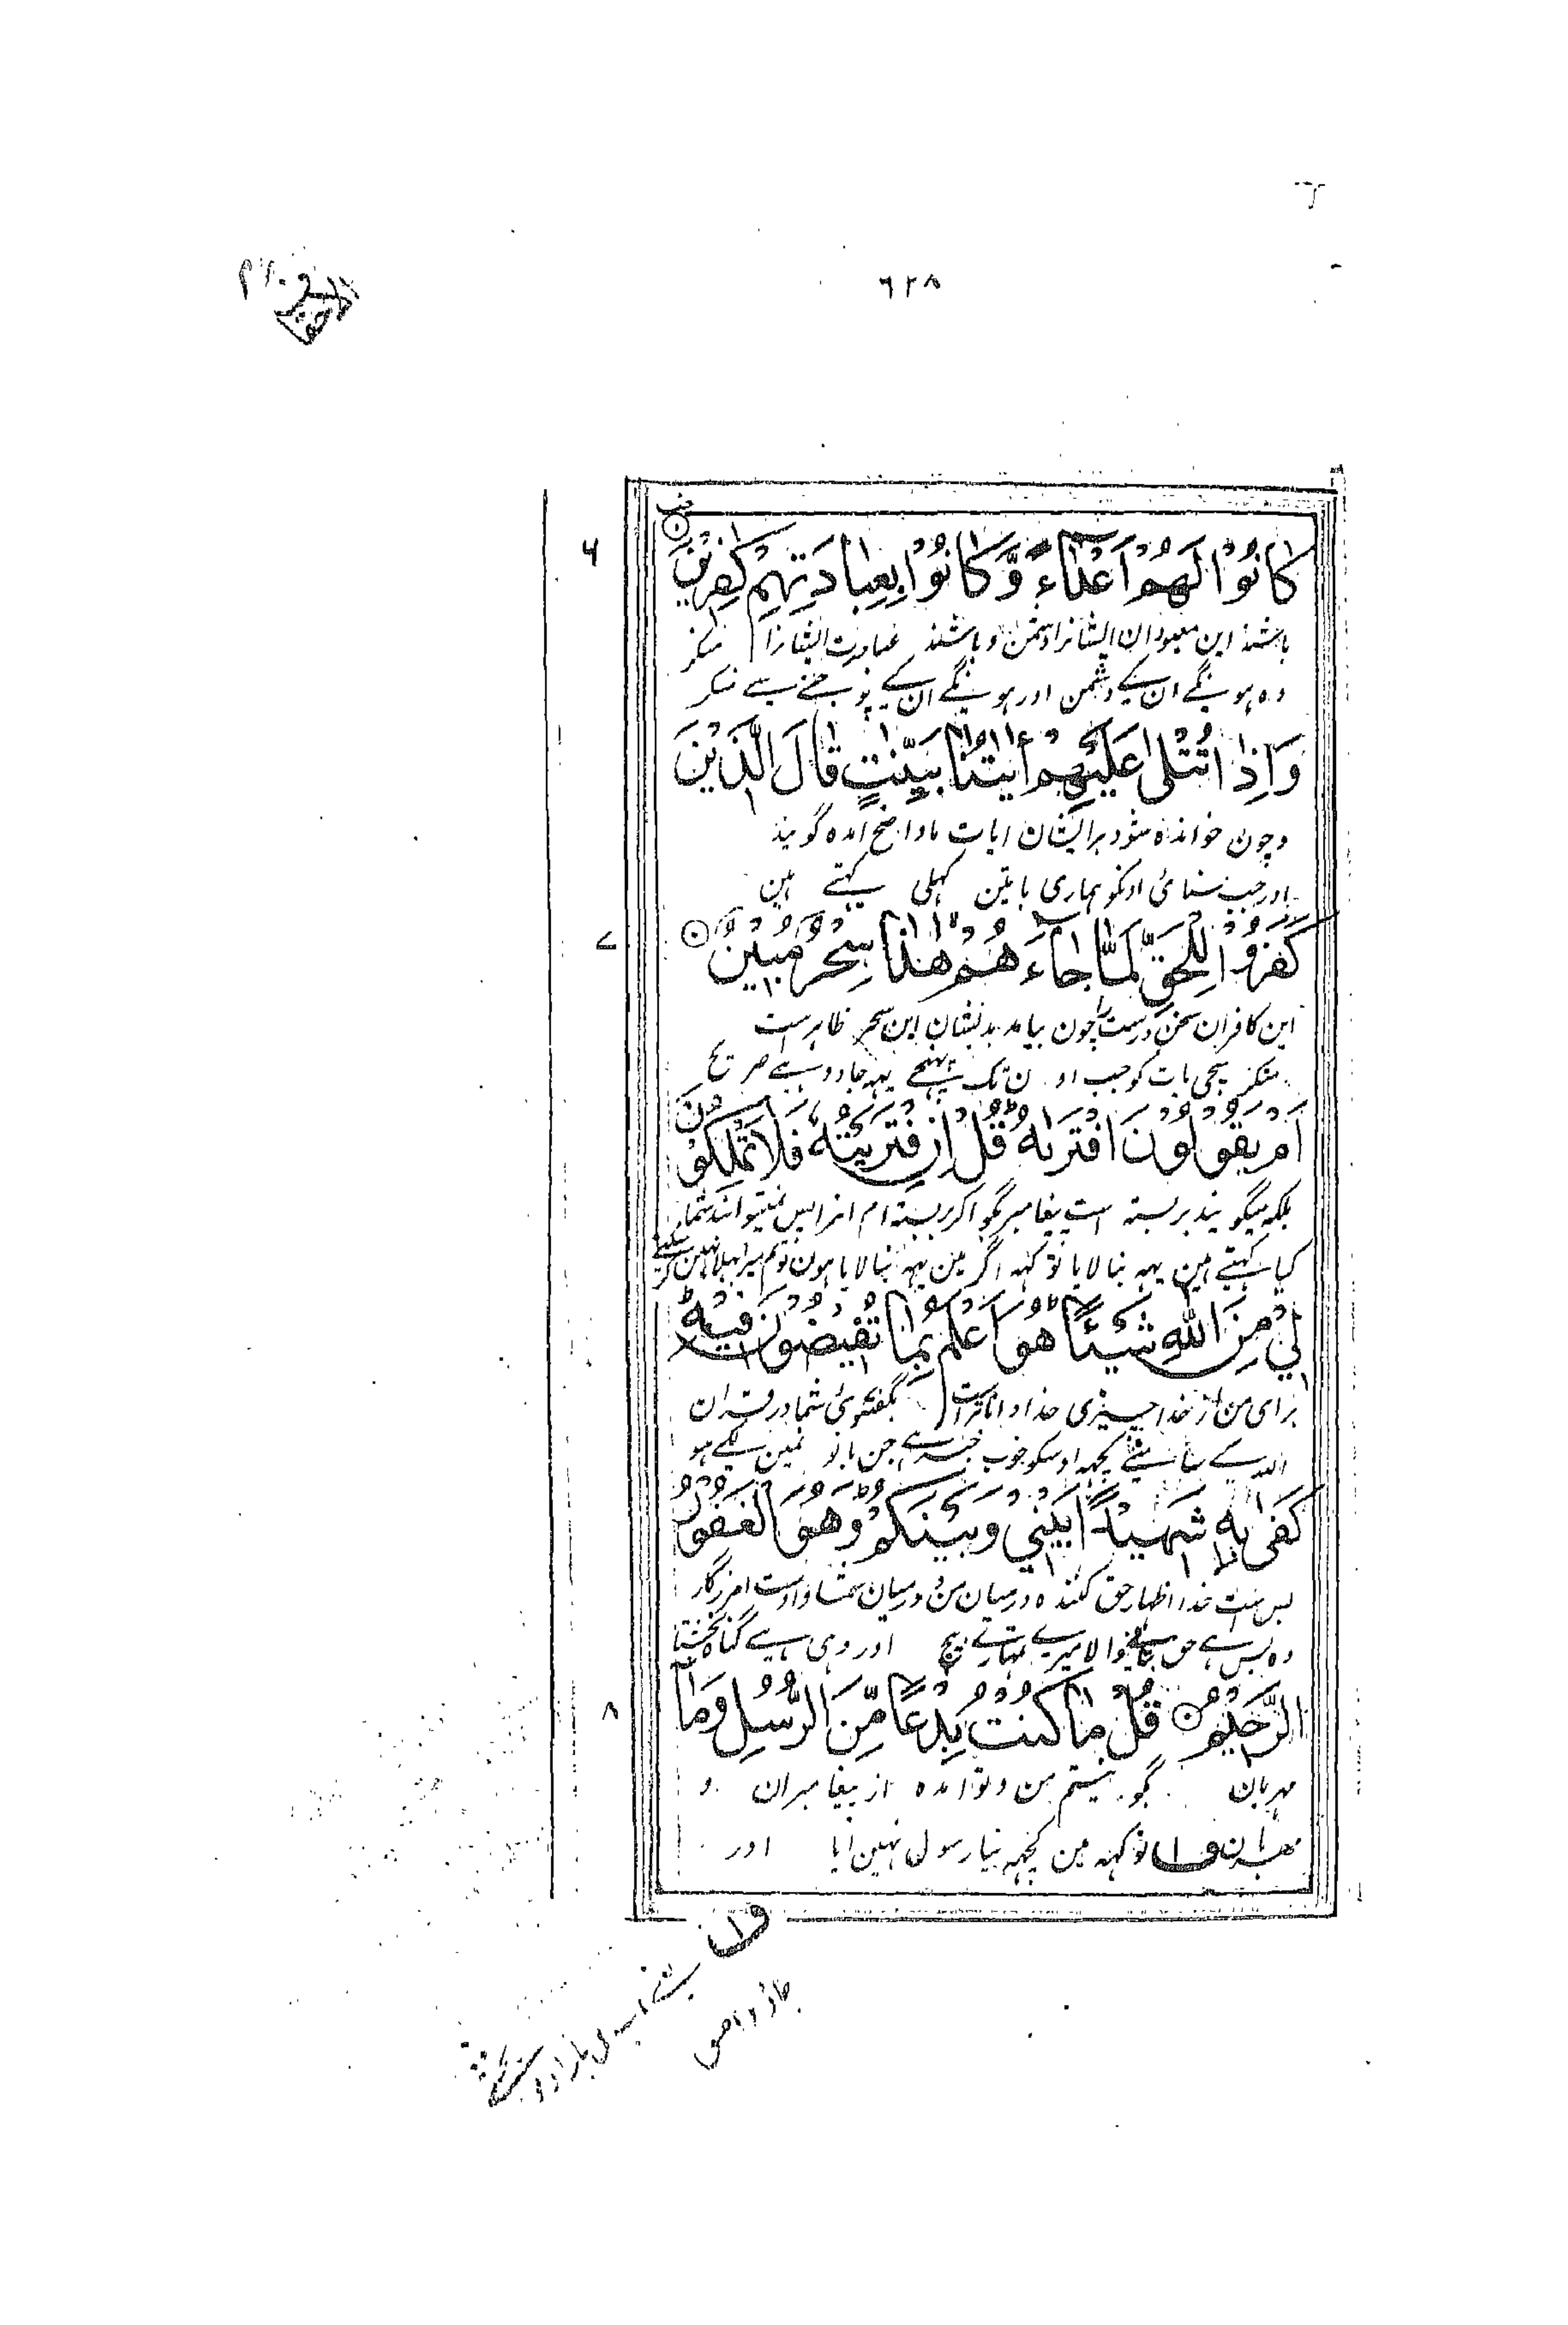 ٦٢٨
كَانُوْا لَهُمْ اَعْدَآءً وَّكَانُوْا بِعِبَادَتِهِمْ كٰفِرِيْنَ
٦
باشند این معبودان ایشانرا دشمن و باشند عبادت ایشانرا منکر
وہ ہونگے ان کے دشمن اور ہونگے ان کے پوجنے سے منکر
وَاِذَا تُتْلٰى عَلَيْهِمْ اٰيٰتُنَا بَيِّنٰتٍ قَالَ الَّذِيْنَ
و چون خوانده شود بر ایشان ایات ما واضح امده گویند
اور جب سنائی اونکو ہماری باتین کہلی کہتے ہین
كَفَرُوْا لِلْحَقِّ لَمَّا جَآءَهُمْ هٰذَا سِحْرٌ مُّبِيْنٌ
٧
این کافران سخن درست را چون بیامد بدیشان این سحر ظاہر است
منکر سچی بات کو جب اون تک پہنچے یہہ جادو ہے صریح
اَمْ يَقُوْلُوْنَ افْتَرٰىهُ قُلْ اِنِ افْتَرَيْتُهٗ فَلَا تَمْلِكُوْنَ
بلکه میگویند بر بسته است پیغامبر بگو اگر بر بسته ام انرا پس نمیتوانند شما
کیا کہتے ہین یہہ بنا لایا تو کہہ اگر مین یہہ بنا لایا ہون تو تم میرا بہلا نہین کر سکتے
لِيْ مِنَ اللّٰهِ شَيْـًٔا هُوَ اَعْلَمُ بِمَا تُفِيْضُوْنَ فِيْهِ
برای من از خدا چیزی خدا داناتر است بگفتگوئ شما در قران
اللہ کے سامنے کچہہ اوسکو خوب خبر ہے جن باتو نمین لگے ہو
كَفٰى بِهٖ شَهِيْدًا بَيْنِيْ وَبَيْنَكُمْ وَهُوَ الْغَفُوْرُ
بس است خدا اظهار حق کننده درمیان من و درمیان شما و اوست امرزگار
وہ بس ہے حق بتانیوالا میرے تمہارے بیچ اور وہی ہے گناہ بخشتا
الرَّحِيْمُ قُلْ مَا كُنْتُ بِدْعًا مِّنَ الرُّسُلِ وَمَآ
٨
مہربان بگو نیستم من نو امده از پیغامبران و
مہربان ف١ تو کہہ مین کچہہ نیا رسول نہین ایا اور
ف١